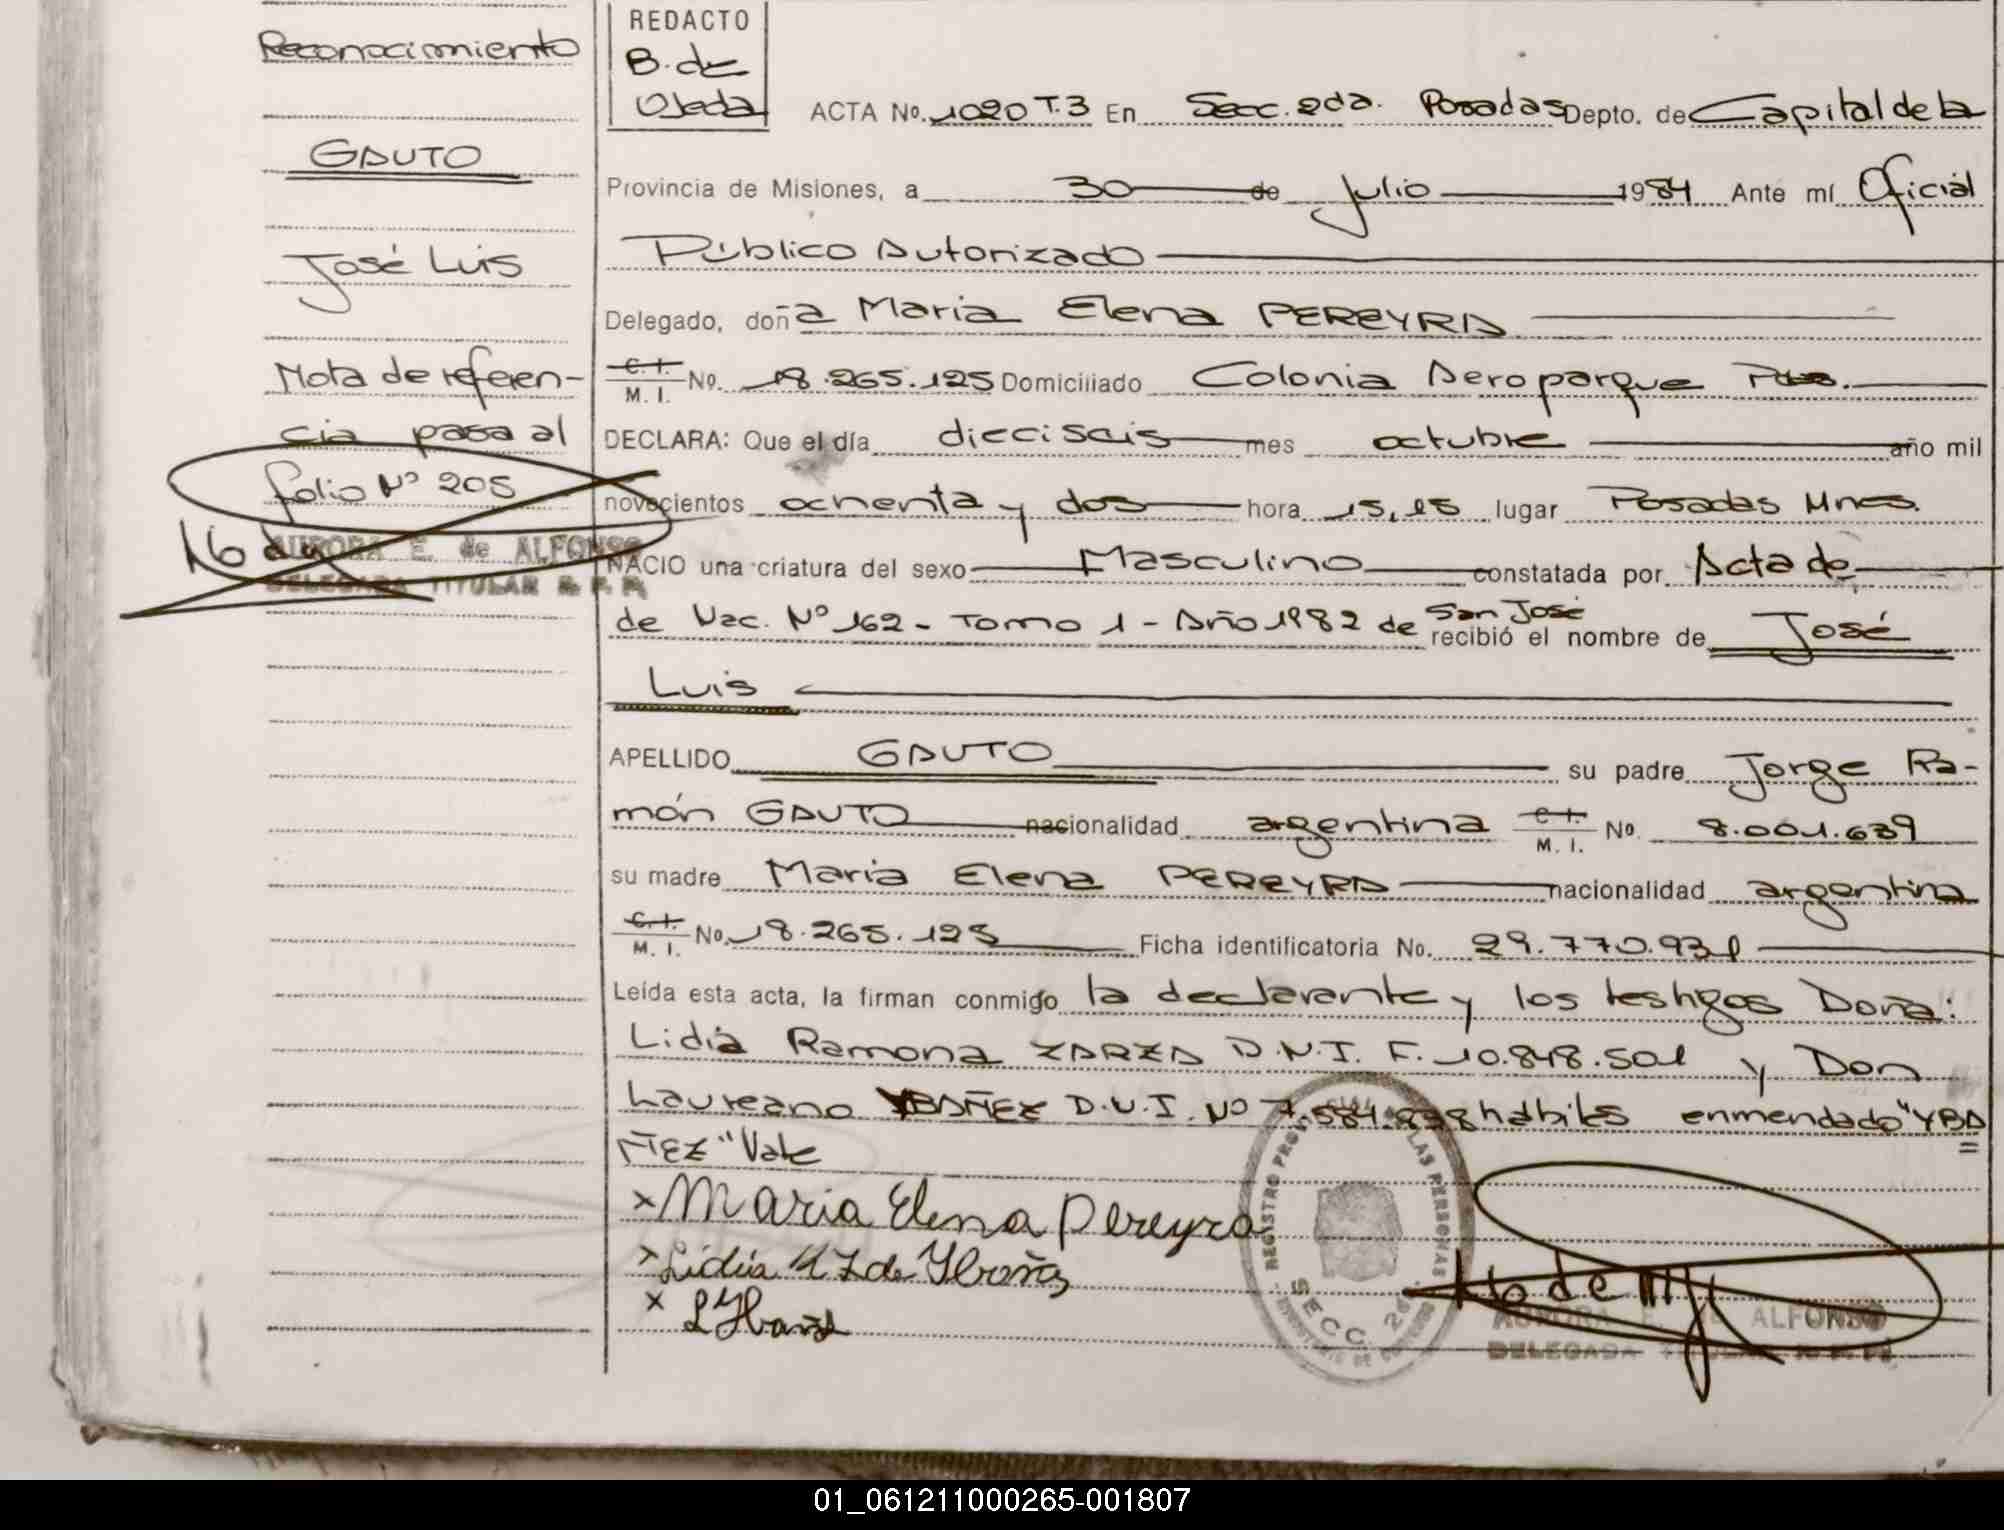 Reconocimiento
GAUTO
José Luis
Nota de referen-
cia pasa al
folio Nº 205
AURORA E. de ALFONSO
DELEGADA TITULAR R. P. P.
REDACTO
B. de
Ojeda
ACTA No. 1020 T.3 En Secc. 2da. Posadas Depto. de Capital de la
Provincia de Misiones, a 30 de Julio 1984 Ante mí Oficial
Público Autorizado
Delegado, doña Maria Elena PEREYRA
C. I. / M. I. No. 18.265.125 Domiciliado Colonia Aeroparque Pdas.
DECLARA: Que el día dieciseis mes octubre año mil
novecientos ochenta y dos hora 15,15 lugar Posadas Mnes.
NACIO una criatura del sexo Masculino constatada por Acta de
de Nac. Nº 162 - Tomo 1 - Año 1982 de San José recibió el nombre de José
Luis
APELLIDO GAUTO su padre Jorge Ra-
món GAUTO nacionalidad argentina C. I. / M. I. No. 8.001.639
su madre Maria Elena PEREYRA nacionalidad argentina
C. I. / M. I. No. 18.265.125 Ficha identificatoria No. 29.770.931
Leída esta acta, la firman conmigo la declarante y los testigos Doña:
Lidia Ramona ZARZA D.N.I. F. 10.848.501 y Don
Laureano YBAÑEZ D.N.I. Nº 7.584.898 hábiles enmendado "YBA
ÑEZ" Vale
x Maria Elena Pereyra
x Lidia Z de Ybañez
x L Ybañez
REGISTRO PROVINCIAL DE LAS PERSONAS
SECC. 2da
AURORA E. DE ALFONSO
DELEGADA TITULAR R. P. P.
01_061211000265-001807